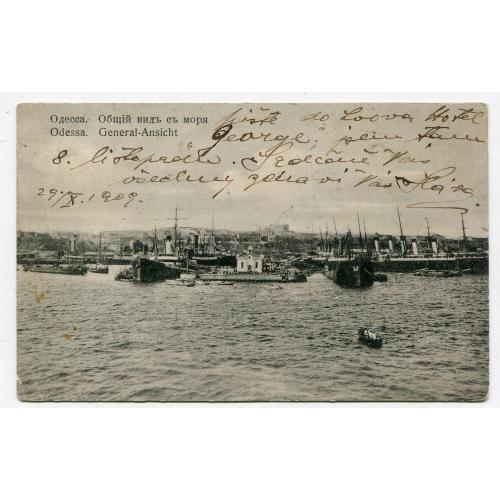 Одесса. Общій видъ съ моря
Odessa. General-Ansicht
piště do Lvova Hotel
George", jsem tam
8. listopadu. Srdečně Vás
všechny zdraví Váš
29/X. 1909.